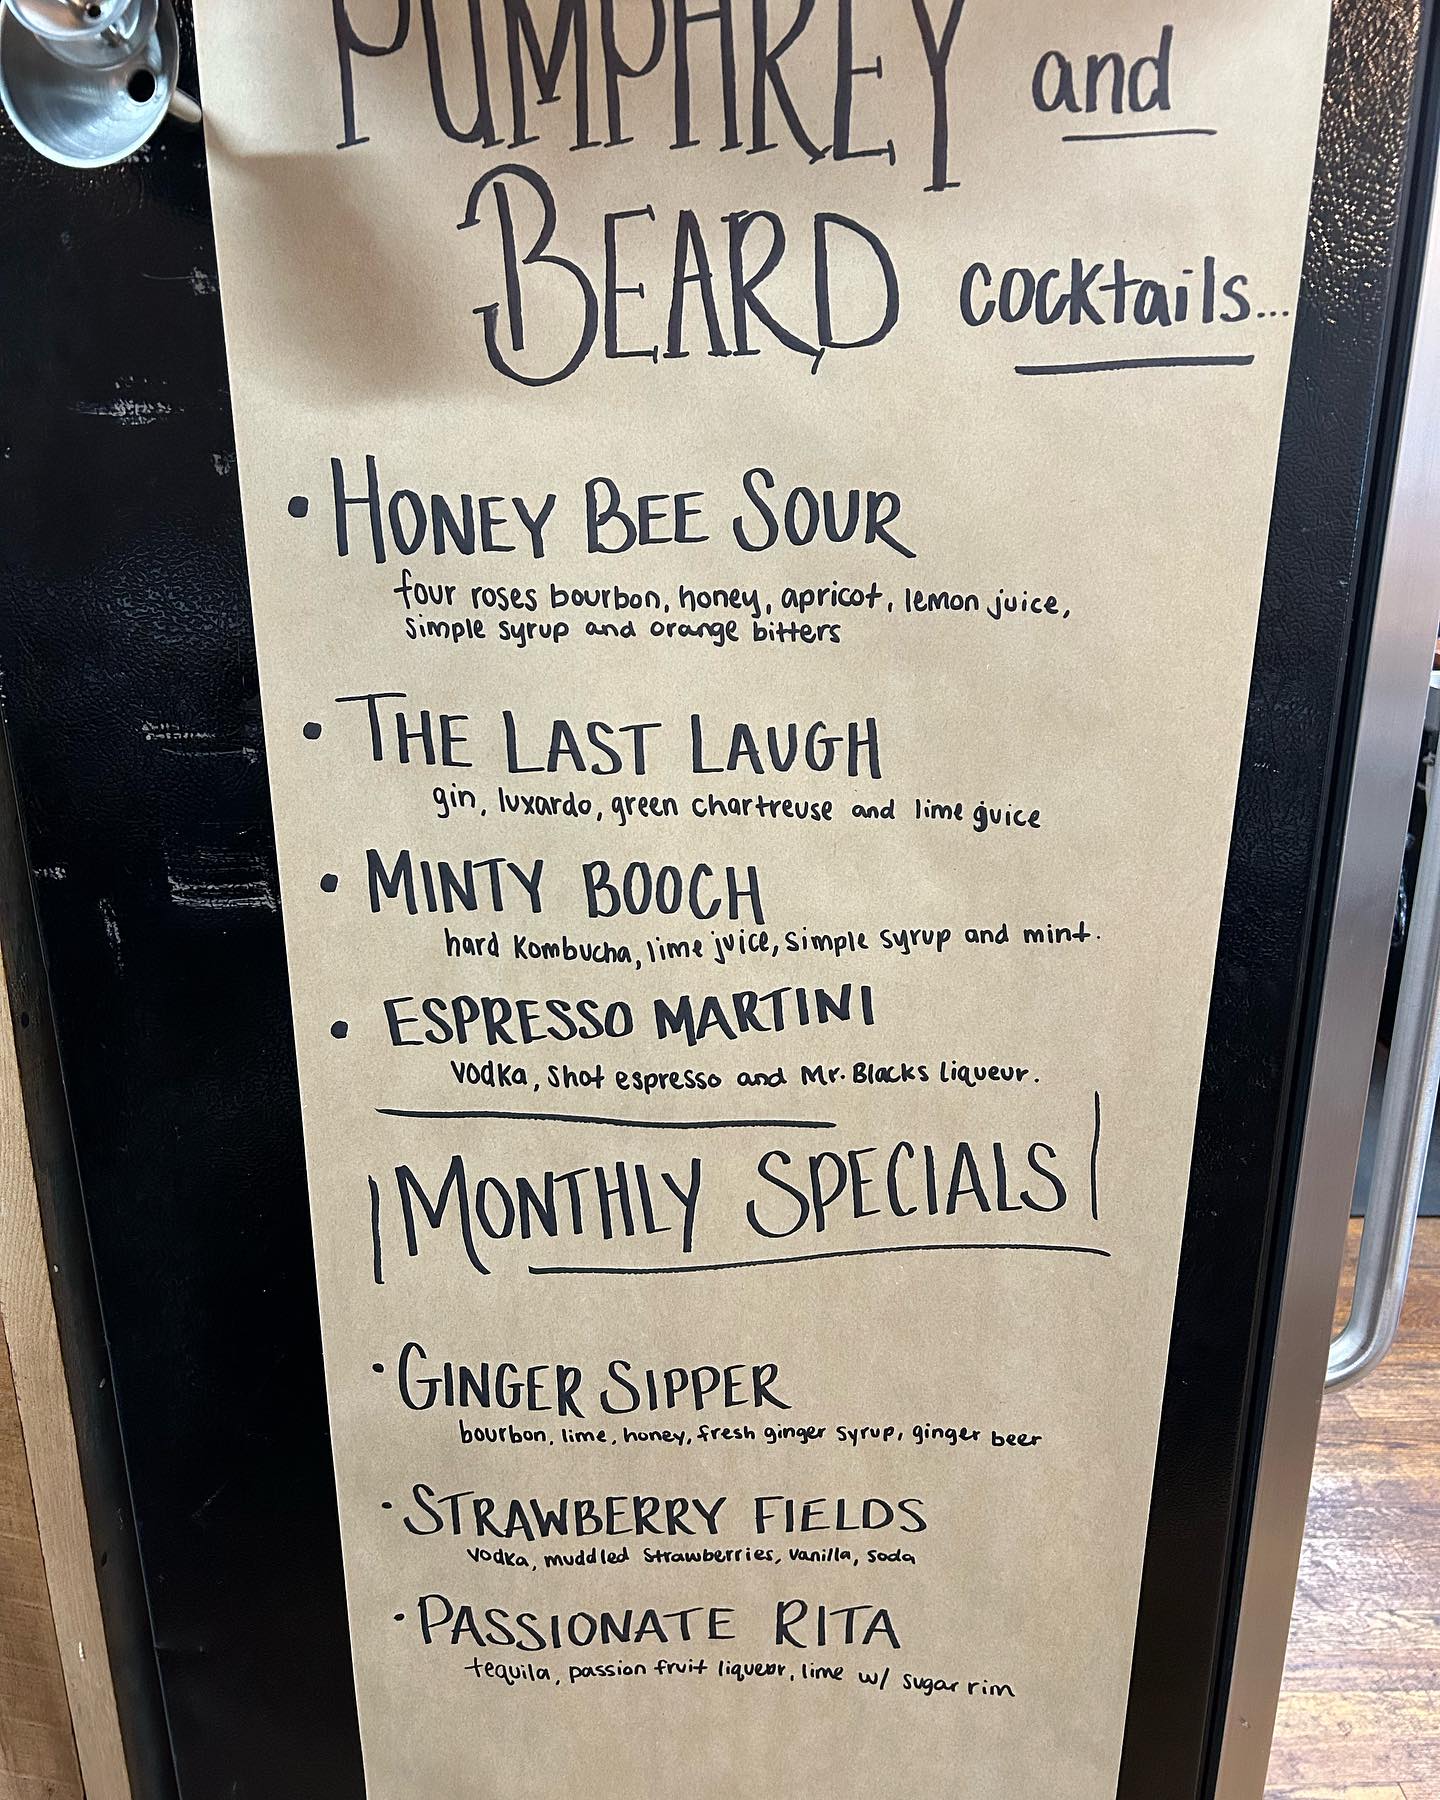 PUMPHREY and
BEARD cocktails...
• HONEY BEE SOUR
four roses bourbon, honey, apricot, lemon juice,
simple syrup and orange bitters
• THE LAST LAUGH
gin, luxardo, green chartreuse and lime juice
• MINTY BOOCH
hard Kombucha, lime juice, simple syrup and mint.
• ESPRESSO MARTINI
vodka, shot espresso and Mr. Blacks liqueur.
MONTHLY SPECIALS
• GINGER SIPPER
bourbon, lime, honey, fresh ginger syrup, ginger beer
• STRAWBERRY FIELDS
vodka, muddled strawberries, vanilla, soda
• PASSIONATE RITA
tequila, passion fruit liqueur, lime w/ sugar rim